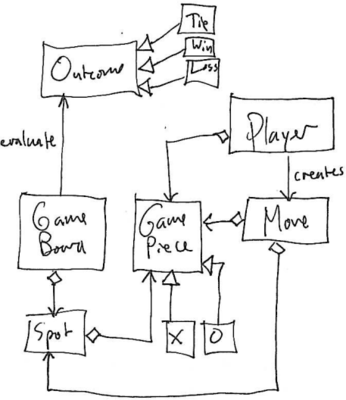 Tie
Win
Loss
Outcome
Player
evaluate
creates
Game
Board
Game
Piece
Move
Spot
X
O